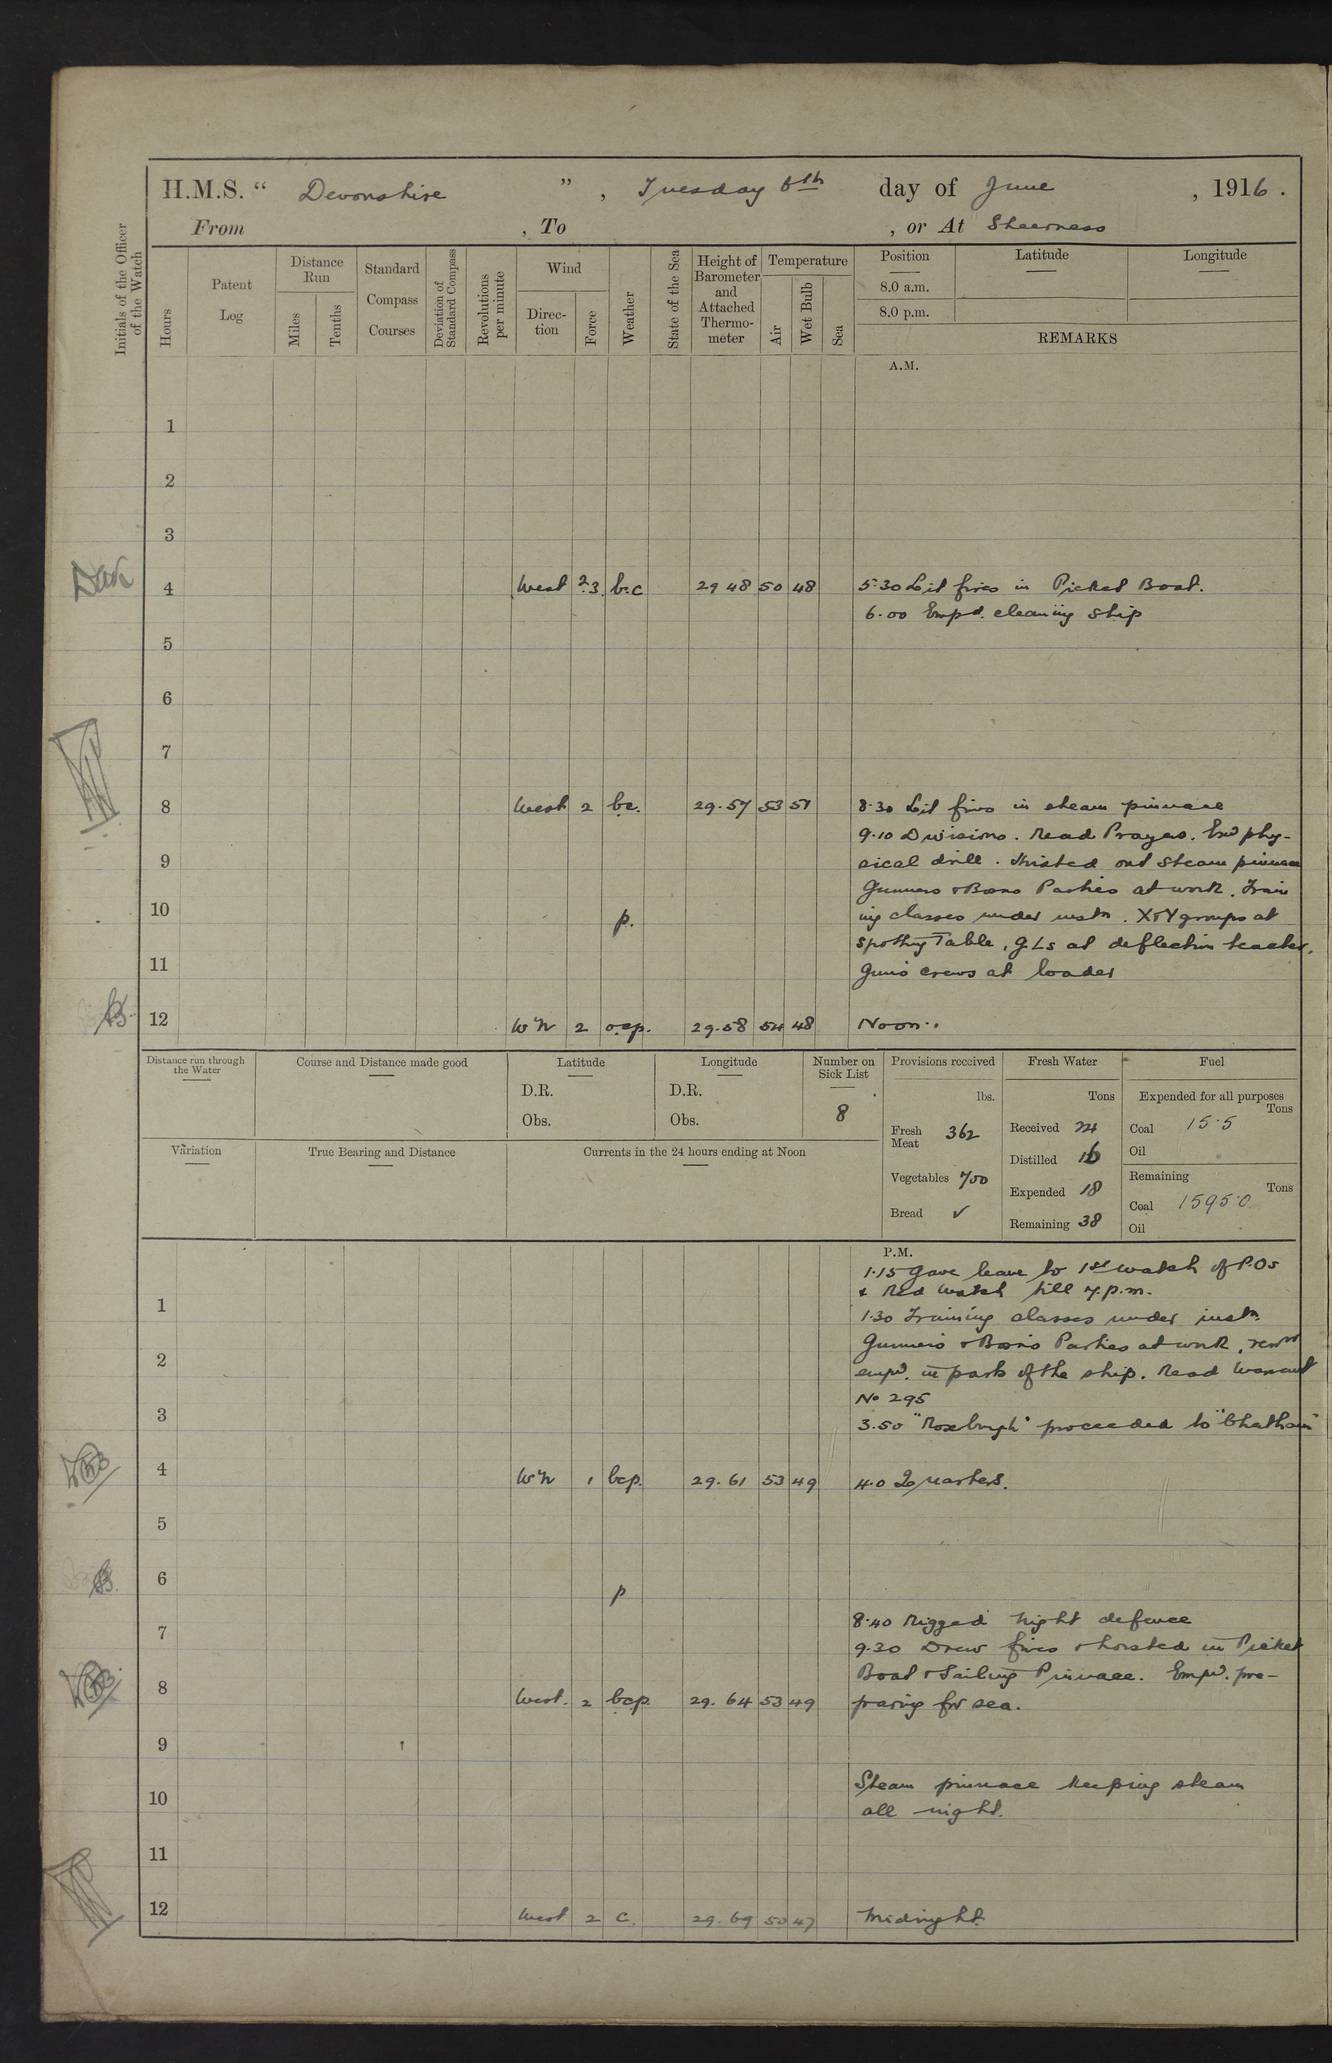 H.M.S. "Devonshire", Tuesday 6th day of June, 1916.
From , To , or At Sheerness
Initials of the Officer of the Watch
Hours
Patent Log
Distance Run
Miles
Tenths
Standard Compass Courses
Deviation of Standard Compass
Revolutions per minute
Wind
Direction
Force
Weather
State of the Sea
Height of Barometer and Attached Thermometer
Temperature
Air
Wet Bulb
Sea
Position Latitude Longitude
8.0 a.m.
8.0 p.m.
REMARKS
A.M.
1
2
3
4 West 2.3 b.c 29 48 50 48 5.30 Lit fires in Picket Boat.
6.00 Empd. cleaning ship
5
6
7
8 West 2 bc. 29.57 53 51 8.30 Lit fires in steam pinnace
9.10 Divisions. Read Prayers. Empd phy-
9 sical drill. Hoisted out Steam pinnace
Gunners & Bosns Parties at work. Train
10 p. ing classes under instn. X&Y groups at
spotting Table, G.Ls at deflection teacher.
11 Guns crews at loader
12 W'N 2 ocp. 29.58 54 48 Noon.
Distance run through the Water
Course and Distance made good
Latitude
D.R.
Obs.
Longitude
D.R.
Obs.
Number on Sick List
8
Provisions received
lbs.
Fresh Meat 362
Vegetables 700
Bread ✓
Fresh Water
Tons
Received 24
Distilled 16
Expended 18
Remaining 38
Fuel
Expended for all purposes
Tons
Coal 15.5
Oil
Remaining
Tons
Coal 1595.0
Oil
Variation
True Bearing and Distance
Currents in the 24 hours ending at Noon
P.M.
1.15 Gave leave to 1st watch of P.Os
& Red Watch till 7.p.m.
1 1.30 Training classes under instn.
Gunners & Bosns Parties at work, remr
2 empd. in parts of the ship. Read Warrant
No 295
3 3.50 "Roxburgh" proceeded to "Chatham"
4 W'N 1 bcp. 29.61 53 49 4.0 Quarters.
5
6 p
8.40 Rigged night defence
7 9.30 Drew fires & hoisted in Picket
Boat & Sailing Pinnace. Empd. pre-
8 West. 2 bcp. 29.64 53 49 paring for sea.
9
Steam pinnace keeping steam
10 all night.
11
12 West 2 c. 29.69 50 47 Midnight